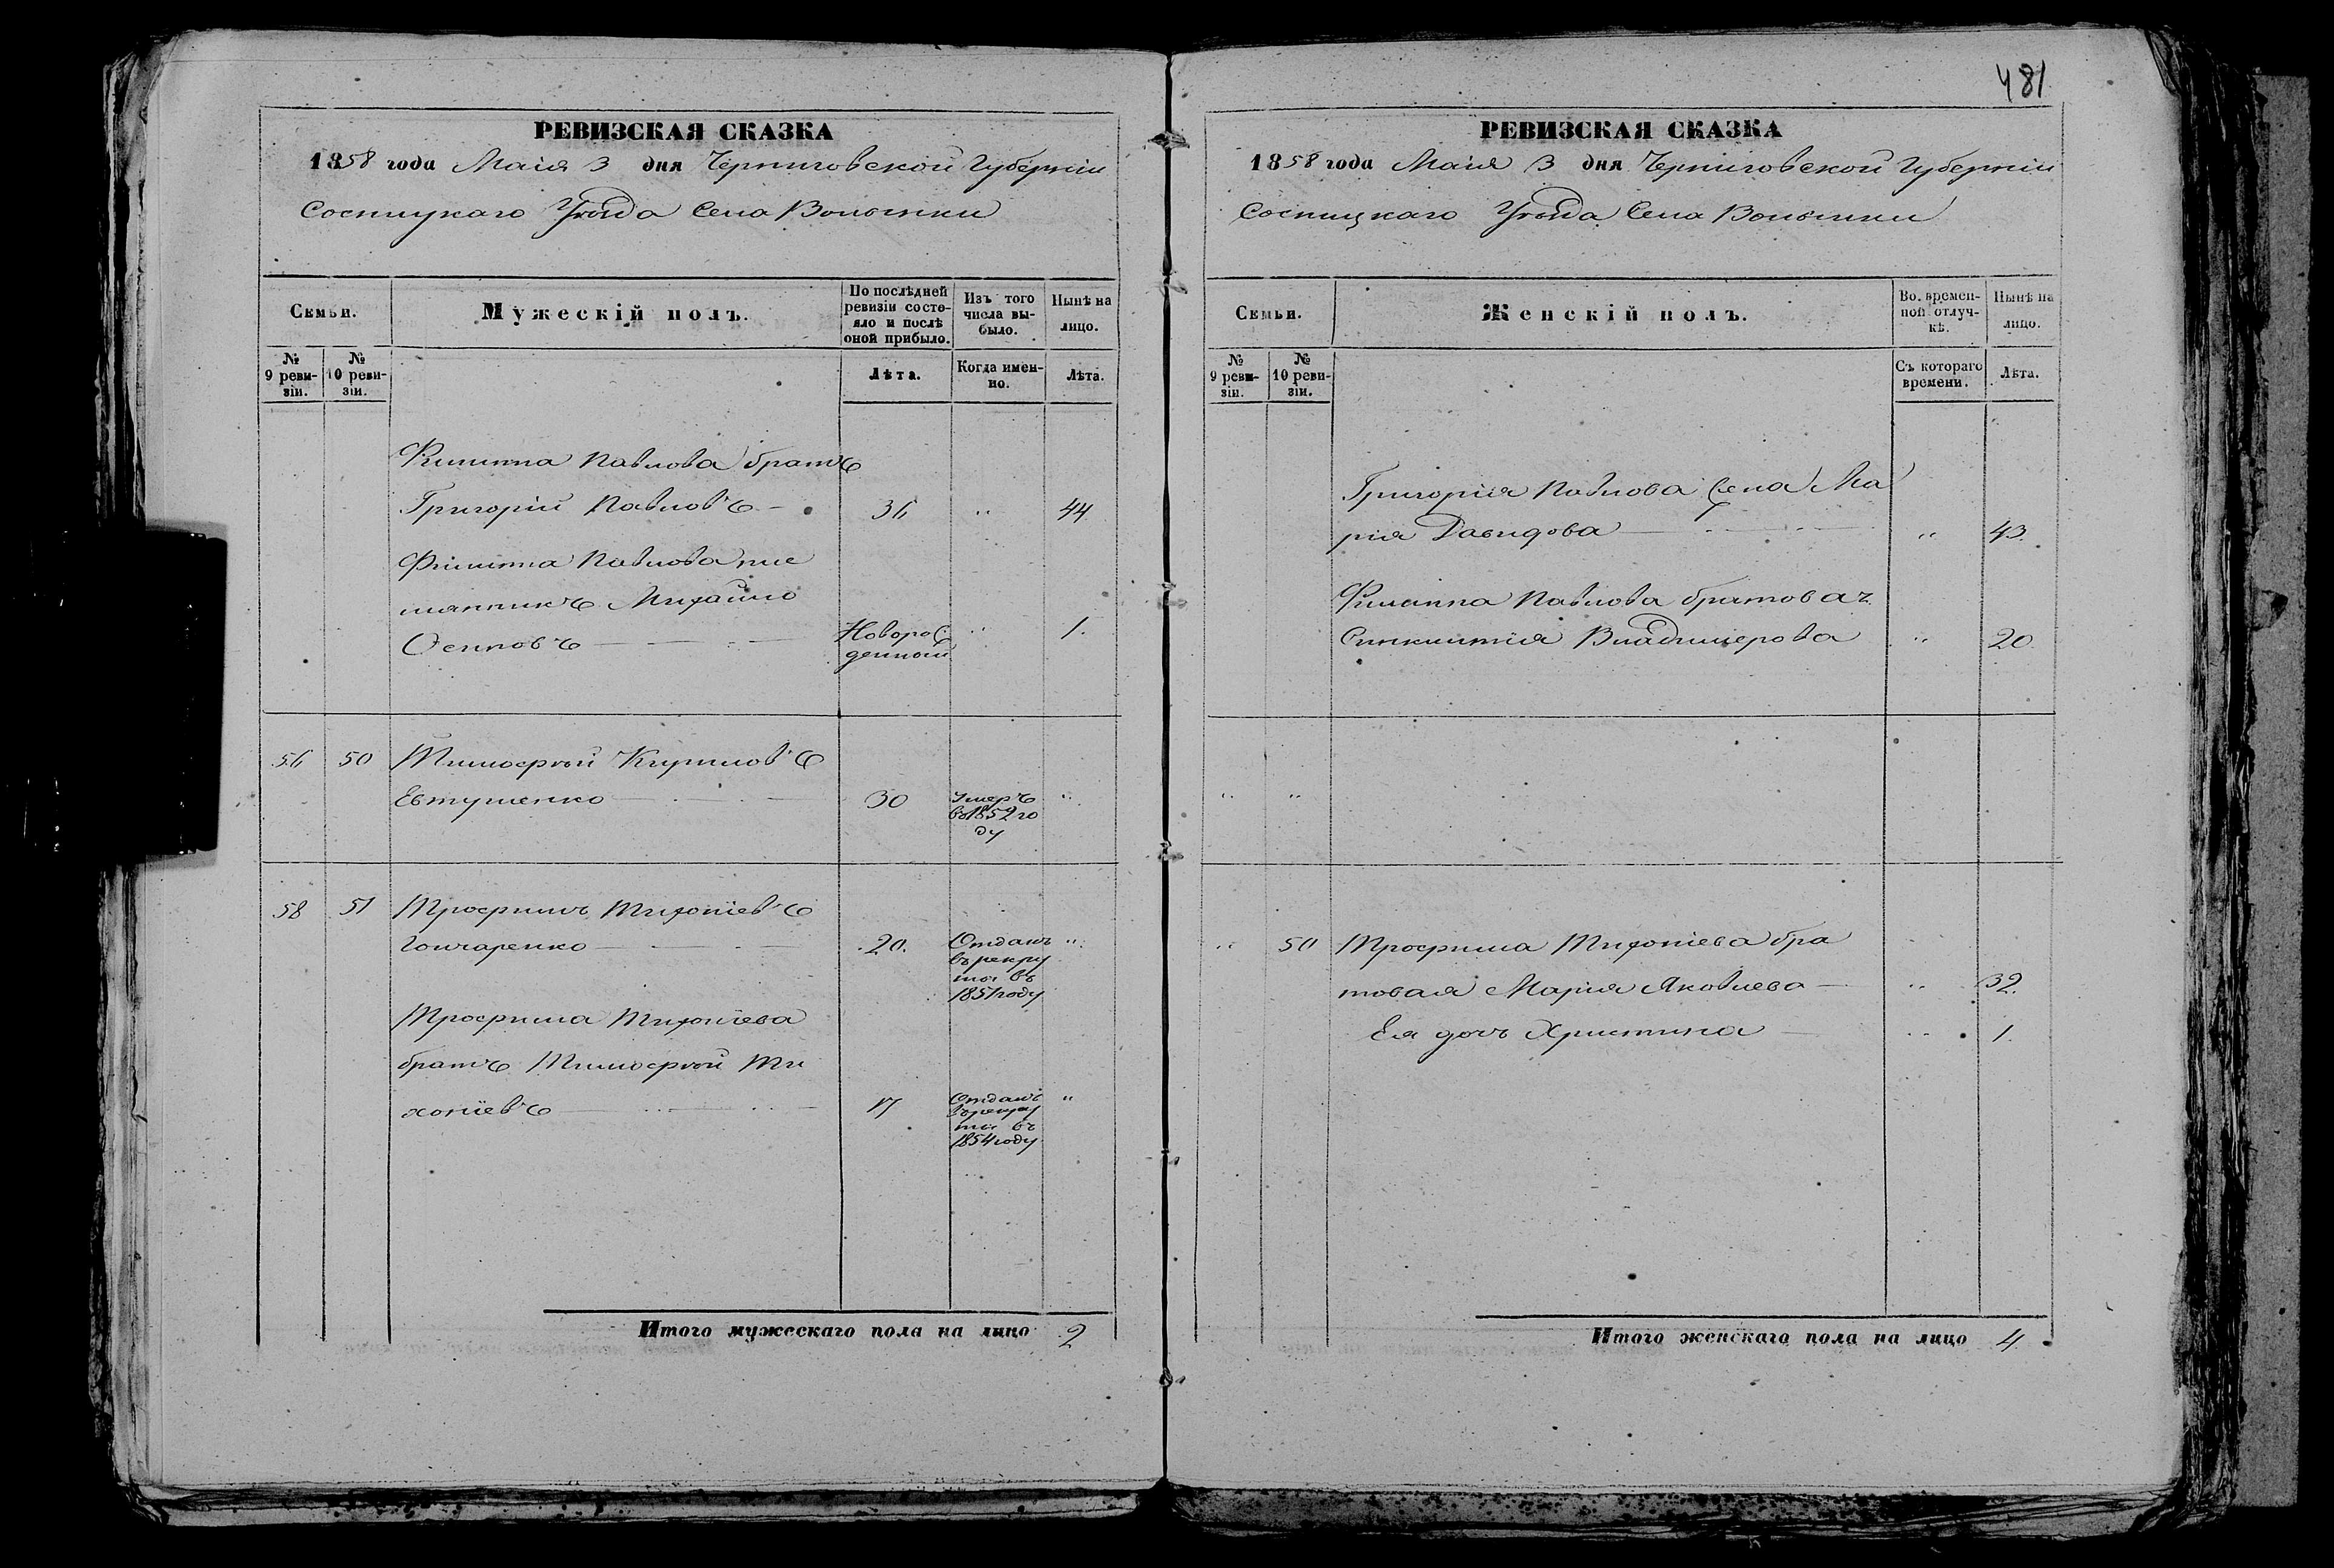 481
РЕВИЗСКАЯ СКАЗКА
1858 года Маія 3 дня Черниговской Губерніи
Сосницкаго Уѣзда Села Волынки
Семьи.
Мужескій полъ.
По послѣдней ревизіи состояло и послѣ оной прибыло.
Изъ того числа выбыло.
Нынѣ на лицо.
№ 9 ревизіи.
№ 10 ревизіи.
Лѣта.
Когда именно.
Лѣта.
Филиппа Павлова братъ
Григорій Павловъ 36 " 44
Филиппа Павлова пле
мянникъ Михайло
Осиповъ Новорож денный " 1.
56 50 Тимофѣй Кириловъ
Евтушенко 30 умеръ въ 1852 го ду "
58 51 Трофимъ Тихоніевъ
Гончаренко 20. Отданъ въ рекру ты въ 1851 году "
Трофима Тихоніева
братъ Тимофѣй Ти
хоніевъ 17 Отданъ въ рекру ты въ 1854 году "
Итого мужескаго пола на лицо 2
РЕВИЗСКАЯ СКАЗКА
1858 года Маія 3 дня Черниговской Губерніи
Сосницкаго Уѣзда Села Волынки
Семьи.
Женскій полъ.
Во временной отлучкѣ.
Нынѣ на лицо.
№ 9 ревизіи.
№ 10 ревизіи.
Съ котораго времени.
Лѣта.
Григорія Павлова жена Ма
рія Давидова " 43.
Филиппа Павлова братовая
Синклитія Владимерова " 20
" "
" 50 Трофима Тихоніева бра
товая Марія Яковлева " 32.
Ея дочь Христина " 1.
Итого женскаго пола на лицо 4.